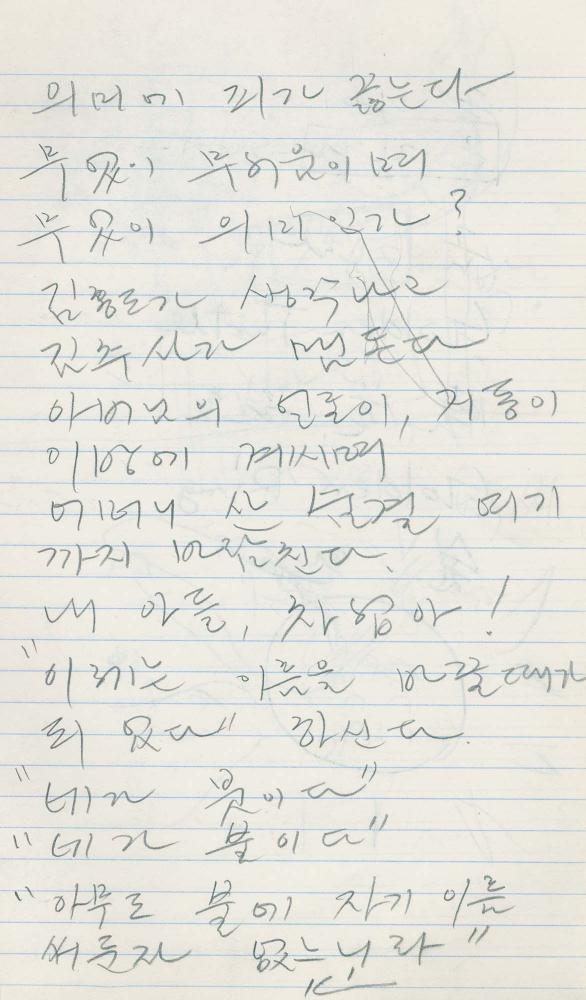 의미에 피가 끓는다
무엇이 무서움이며
무엇이 의미인가?
생각하고
김주사가 맴돈다
아버님의 언론이, 저 돌이
이 땅에 계시며
어머니 산 숨결 여기
까지 바람친다.
내 아들, 차섭아!
"이제는 이름을 바꿀 때가
되었다" 하신다.
"네가 붓이다"
"네가 불이다"
"아무도 불에 자기 이름
써 둔 자 없느니라"